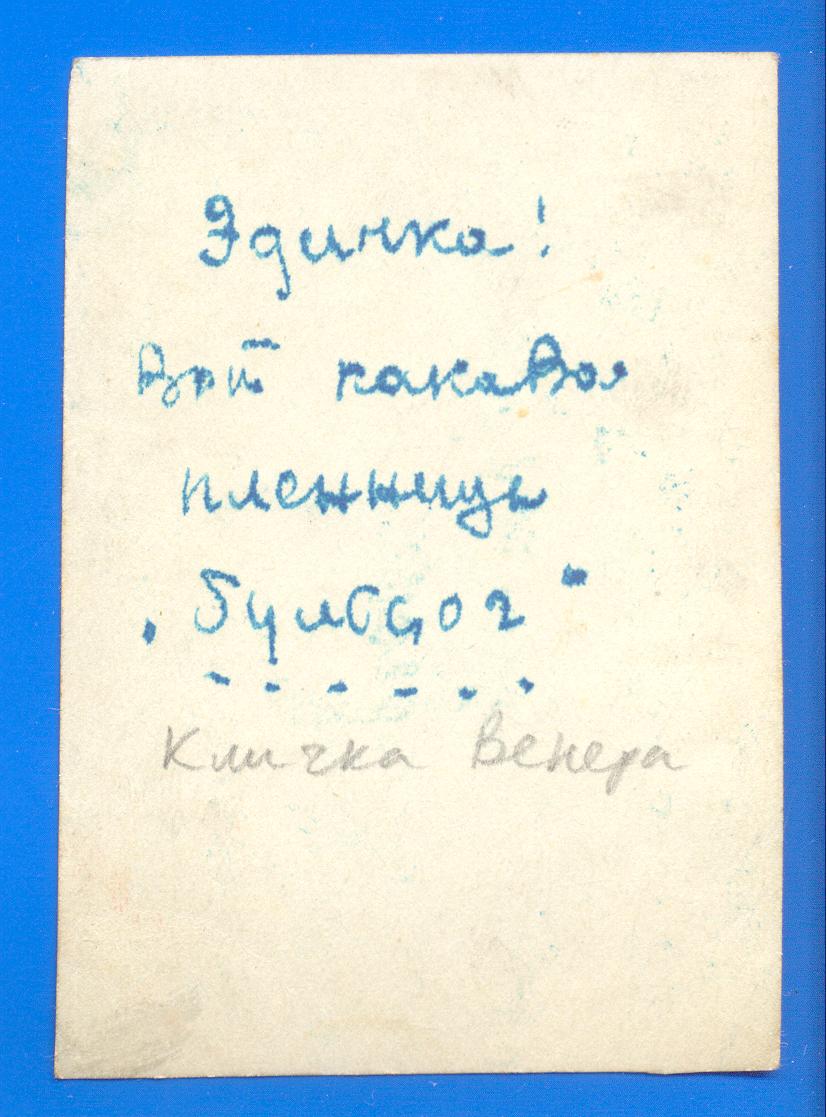 Эдинка!
Вот какава
пленница
„Бульдог“
Кличка Венера